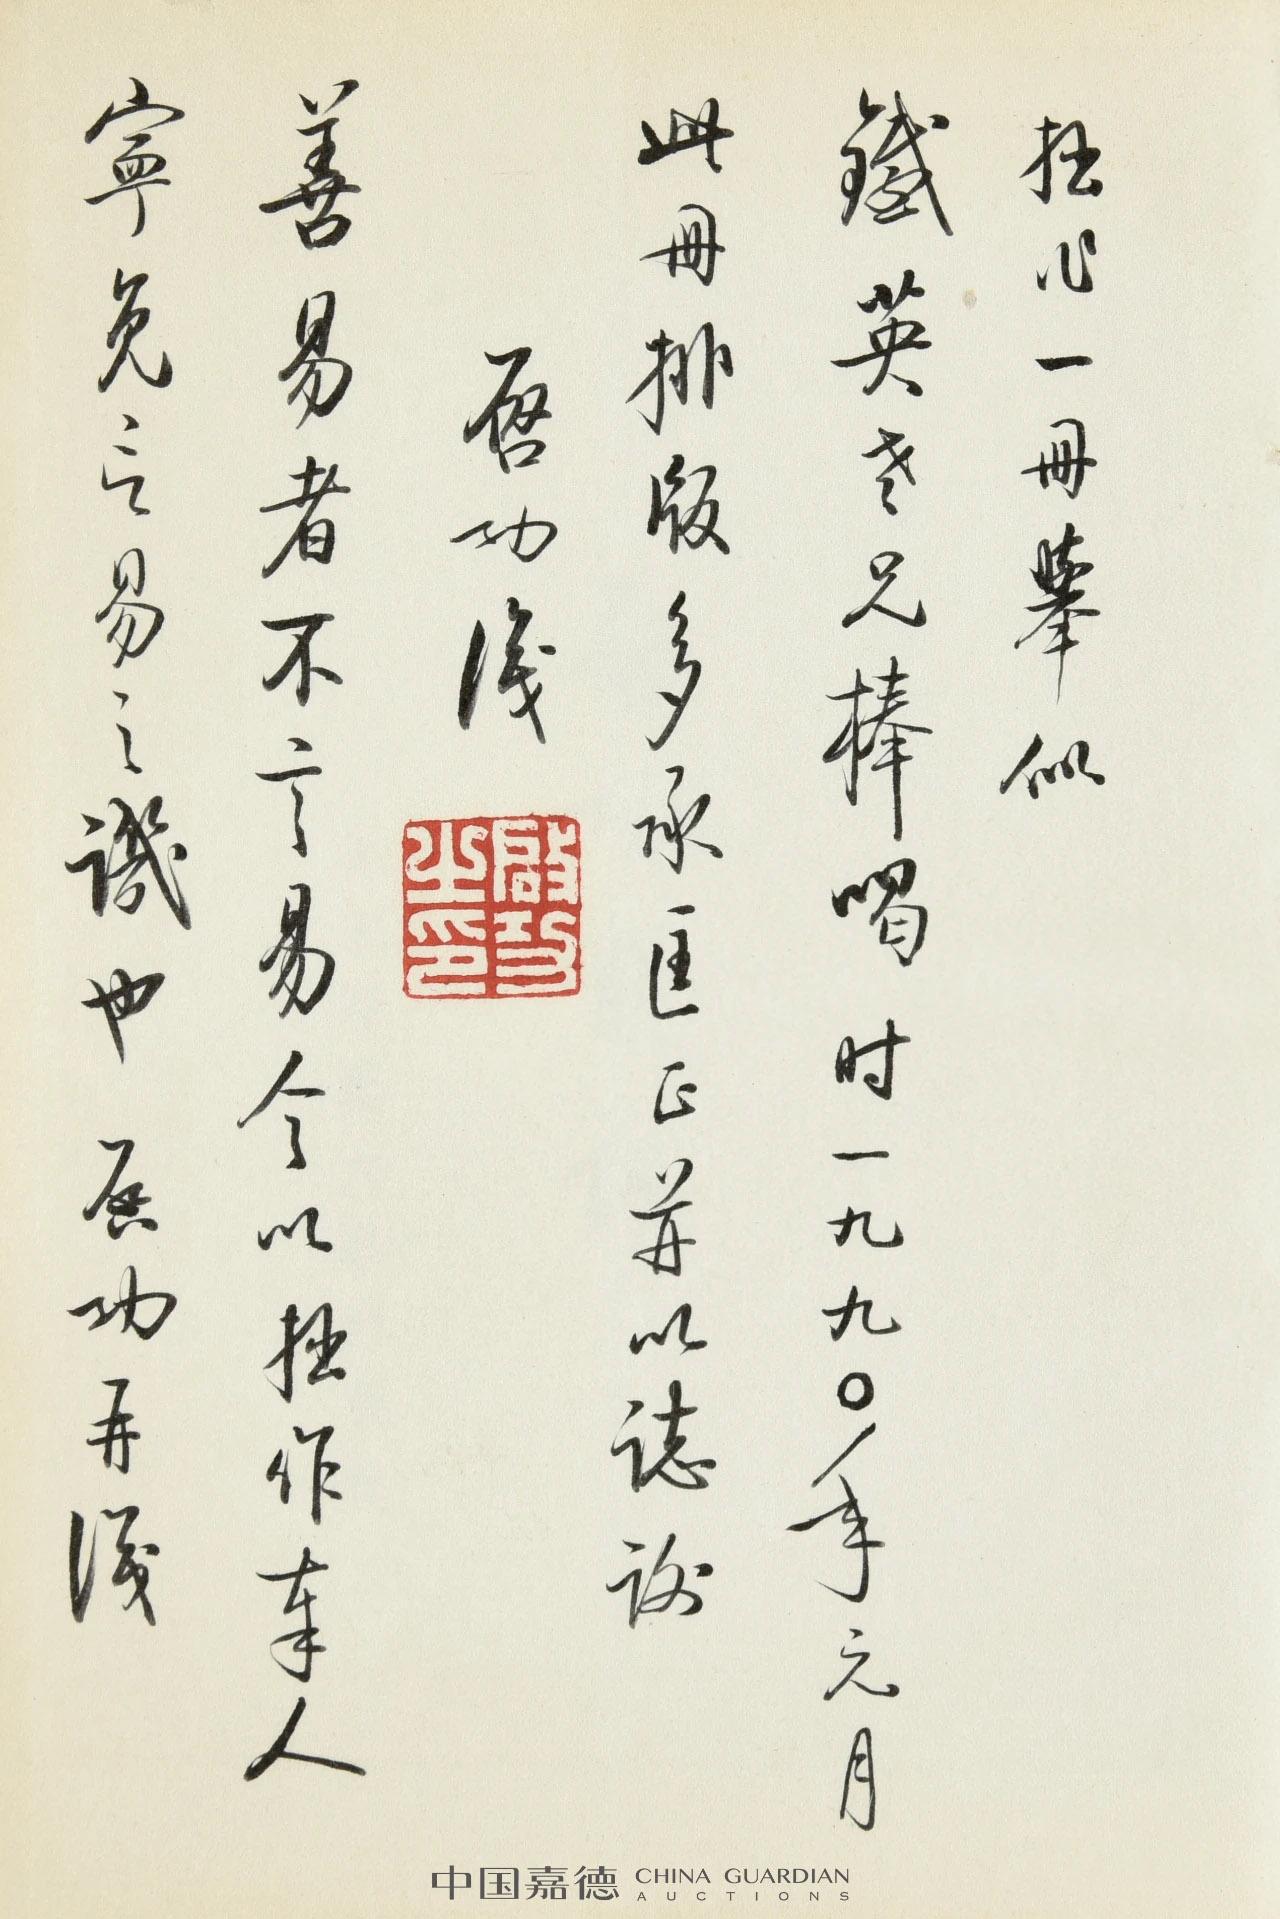 拙作一冊舉似
鐵英老兄棒喝 时一九九〇年元月
此冊排版多承匡正并以誌谢
启功識
啟功之印
善易者不言易今以拙作奉人
寧免言易之譏也 启功再識
中国嘉德 CHINA GUARDIAN AUCTIONS